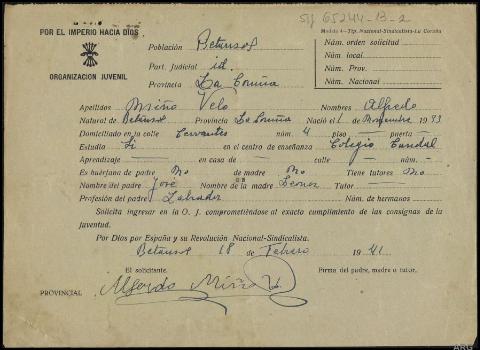 S/ 65244-13-2
POR EL IMPERIO HACIA DIOS
Modelo 4-Tip. Nacional-Sindicalista-La Coruña
Población Betanzos
Núm. orden solicitud
Part. Judicial id.
Núm. local
Núm. Prov.
ORGANIZACION JUVENIL
Provincia La Coruña
Núm. Nacional
Apellidos Miño Velo Nombres Alfredo
Natural de Betanzos Provincia La Coruña Nació el 1 Noviembre 1933
Domiciliado en la calle Cervantes núm. 4 piso — puerta —
Estudia Si en el centro de enseñanza Colegio
Aprendizaje — en casa de — calle — núm. -
Es huérfano de padre No de madre No Tiene tutores No
Nombre del padre José Nombre de la madre Leonor Tutor —
Profesión del padre Labrador Núm. de hermanos
Solicita ingresar en la O. J. comprometiéndose al exacto cumplimiento de las consignas de la
juventud.
Por Dios por España y su Revolución Nacional-Sindicalista.
Betanzos 18 de Febrero 1941
El solicitante, Firma del padre, madre o tutor.
PROVINCIAL Alfredo Miño V.
ARG